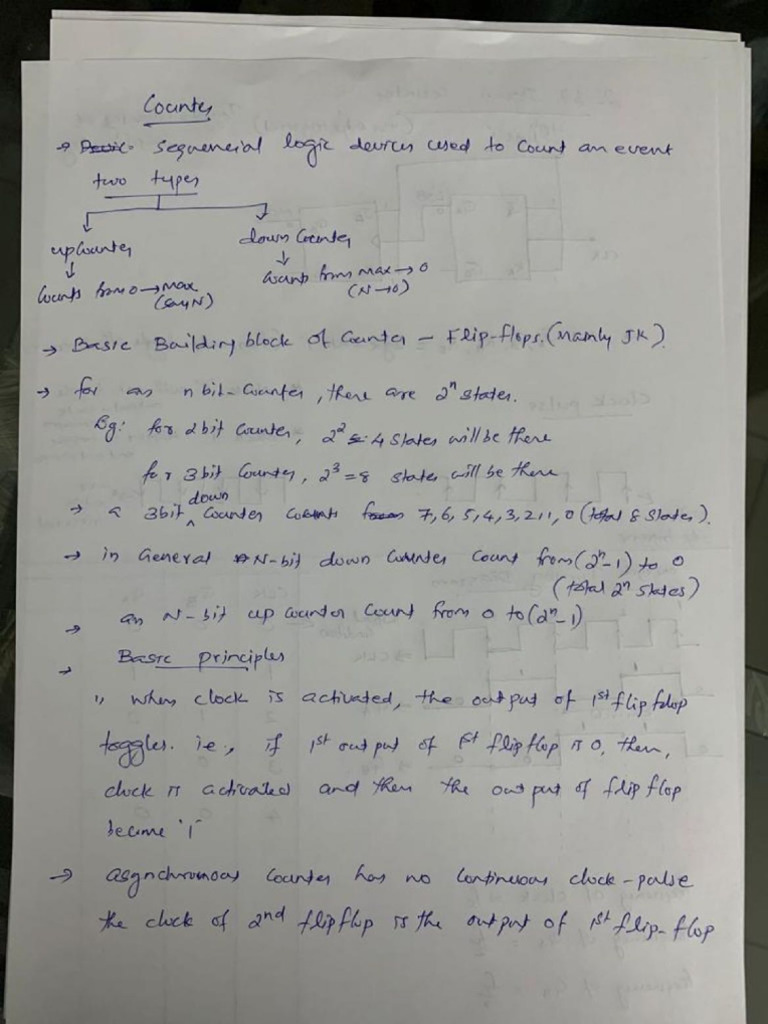 Counter
→ sequencial logic devices used to count an event
two types
upcounter
down counter
counts from 0 → max
(say N)
counts from max → 0
(N → 0)
→ Basic Building block of Counter - Flip-flops. (mainly JK)
→ for an n bit-counter, there are 2ⁿ states.
Eg: for 2bit counter, 2² = 4 states will be there
for 3bit counter, 2³ = 8 states will be there
→ a 3bit down counter counts 7, 6, 5, 4, 3, 2, 1, 0 (total 8 states).
→ in General N-bit down counter count from (2ⁿ-1) to 0
(total 2ⁿ states)
→ an N-bit up counter count from 0 to (2ⁿ-1)
→ Basic principles
when clock is activated, the output of 1st flip flop
toggles. ie, if 1st output of 1st flipflop is 0, then,
clock is activated and then the output of flip flop
become '1'
→ asynchronous counter has no continuous clock-pulse
the clock of 2nd flipflop is the output of 1st flip-flop